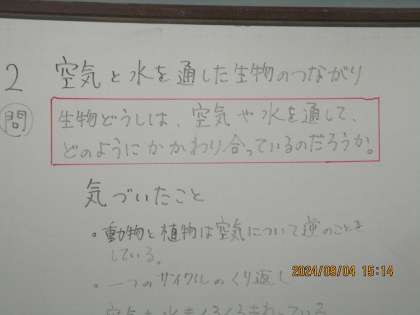 2 空気と水を通した生物のつながり
問 生物どうしは、空気や水を通して、
どのようにかかわり合っているのだろうか。
気づいたこと
・動物と植物は空気について逆のことを
している。
・一つのサイクルのくり返し
空気も水もぐるぐるまわっている
2024/09/04 15:14